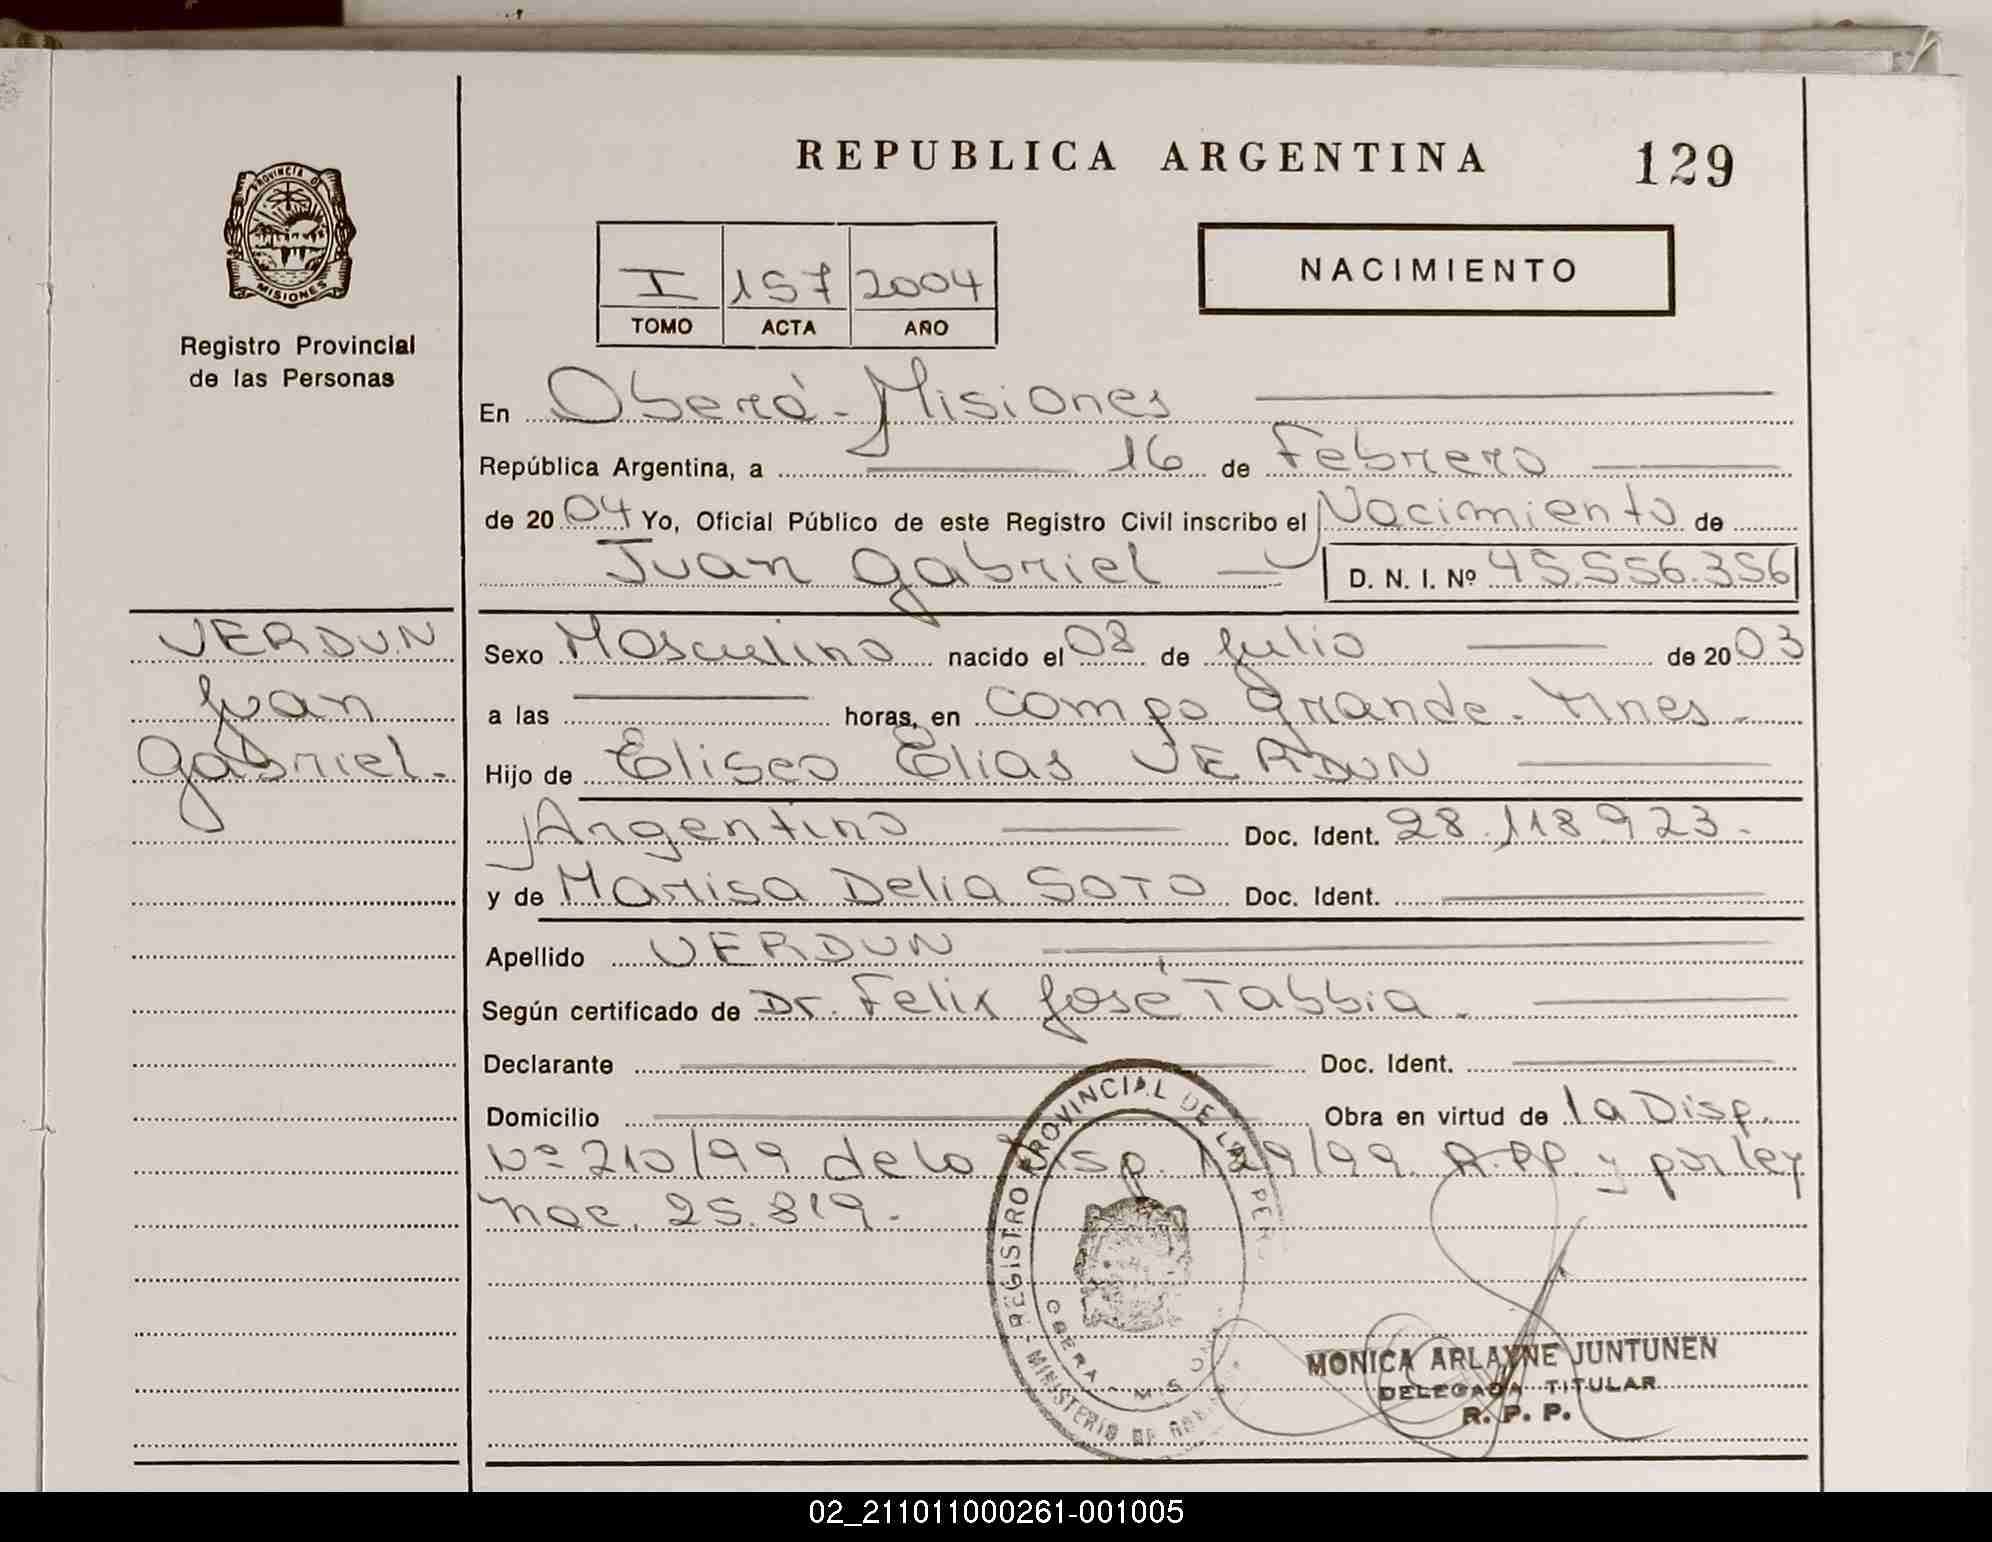 REPUBLICA ARGENTINA
129
PROVINCIA D
MISIONES
Registro Provincial
de las Personas
I 157 2004
TOMO ACTA AÑO
NACIMIENTO
En Oberá - Misiones
República Argentina, a 16 de Febrero
de 2004 Yo, Oficial Público de este Registro Civil inscribo el Nacimiento de
Juan Gabriel D. N. I. Nº 45.556.356
VERDUN
Juan
Gabriel.
Sexo Masculino nacido el 08 de Julio de 2003
a las horas, en Campo Grande - Mnes -
Hijo de Eliseo Elias VERDUN
Argentino Doc. Ident. 28.118.923.
y de Marisa Delia SOTO Doc. Ident.
Apellido VERDUN
Según certificado de Dr. Felix José Tabbia.
Declarante Doc. Ident.
Domicilio Obra en virtud de la Disp.
Nº 210/99 de la Disp. 129/99 R.P.P. y por ley
nac. 25.819.-
REGISTRO PROVINCIAL DE LAS PER
MINISTERIO DE
OBERA - MIS
MONICA ARLAYNE JUNTUNEN
DELEGADA TITULAR
R. P. P.
02_211011000261-001005